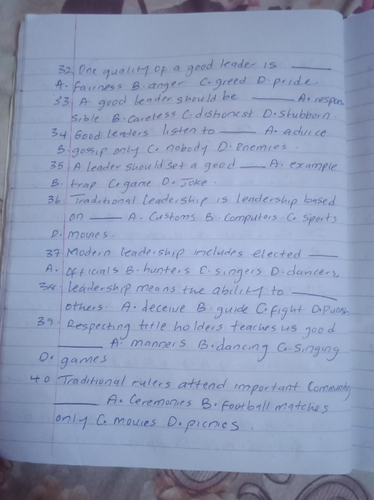 32. One quality of a good leader is ____
A. fairness B. anger C. greed D. pride.
33 A good leader should be ____ A. respon
sible B. careless C. dishonest D. stubborn.
34 Good leaders listen to ____ A. advice
B. gossip only C. nobody D. enemies.
35 A leader should set a good ____ A. example
B. trap C. game D. joke.
36 Traditional leadership is leadership based
on ____ A. Customs B. computers C. sports
D. movies.
37. Modern leadership includes elected ____
A. officials B. hunters C. singers D. dancers.
38 leadership means the ability to ____
others. A. deceive B. guide C. fight
39. Respecting title holders teaches us good
____ A. manners B. dancing C. singing
D. games
40 Traditional rulers attend important Community
____ A. Ceremonies B. football matches
only C. movies D. picnics.